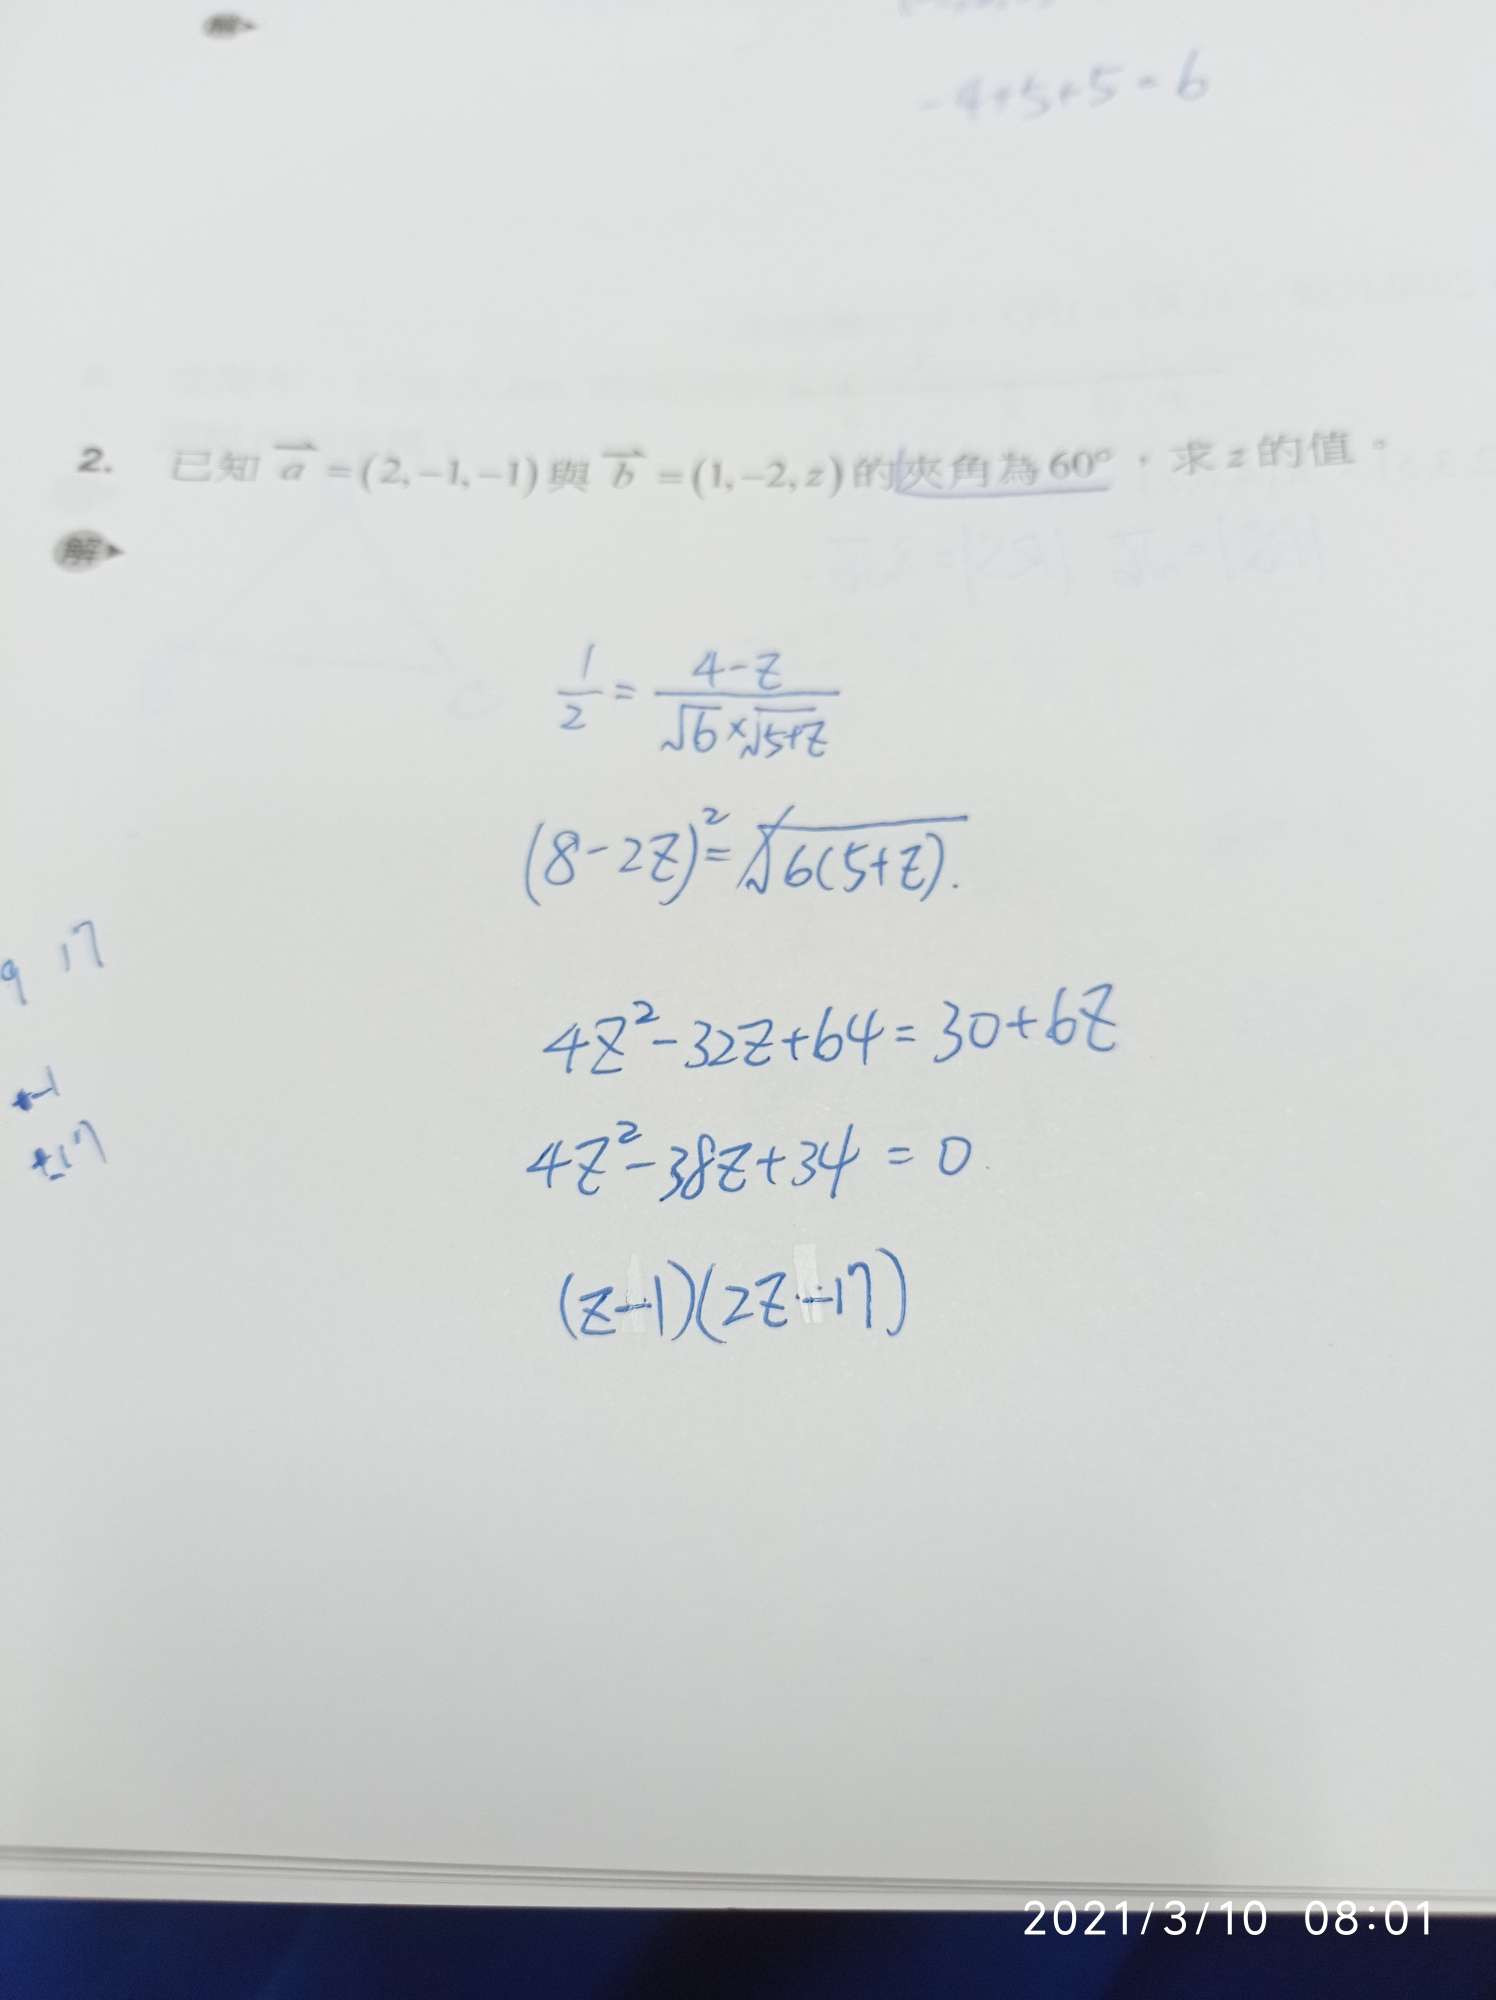 解
-4+5+5=6
2. 已知 a⃗ =(2,-1,-1)與 b⃗ =(1,-2,z)的夾角為60°，求z的值。
解
1/2 = (4-z)/(√6×√5+z)
(8-2z)²=√6(5+z).
9 17
4z²-32z+64=30+6z
-1
4z²-38z+34=0
+17
(z-1)(2z-17)
2021/3/10 08:01